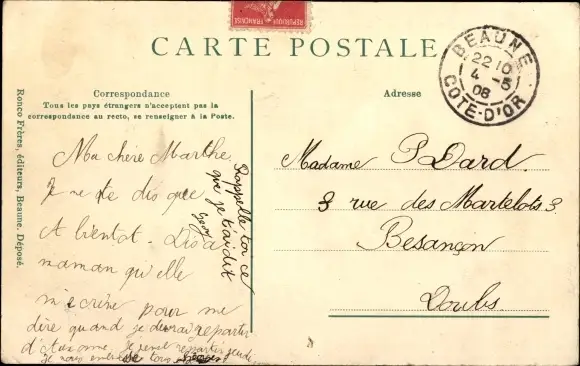 REPUBLIQUE FRANÇAISE
CARTE POSTALE
BEAUNE
22 10
4 -5
08
COTE-D'OR
Correspondance
Tous les pays étrangers n'acceptent pas la
correspondance au recto, se renseigner à la Poste.
Adresse
Ronco Frères, éditeurs, Beaune. Déposé.
Ma chère Marthe.
Je ne te dis que
A bientot. Dis à
maman qu'elle
m'écrive pour me
dire quand je devrai repartir
je repartir jeudi.
Je vous embrasse tous
Rappelle toi ce
que je t'ai dit
Madame P Dard.
3 rue des Martelots 3
Besançon
Doubs.